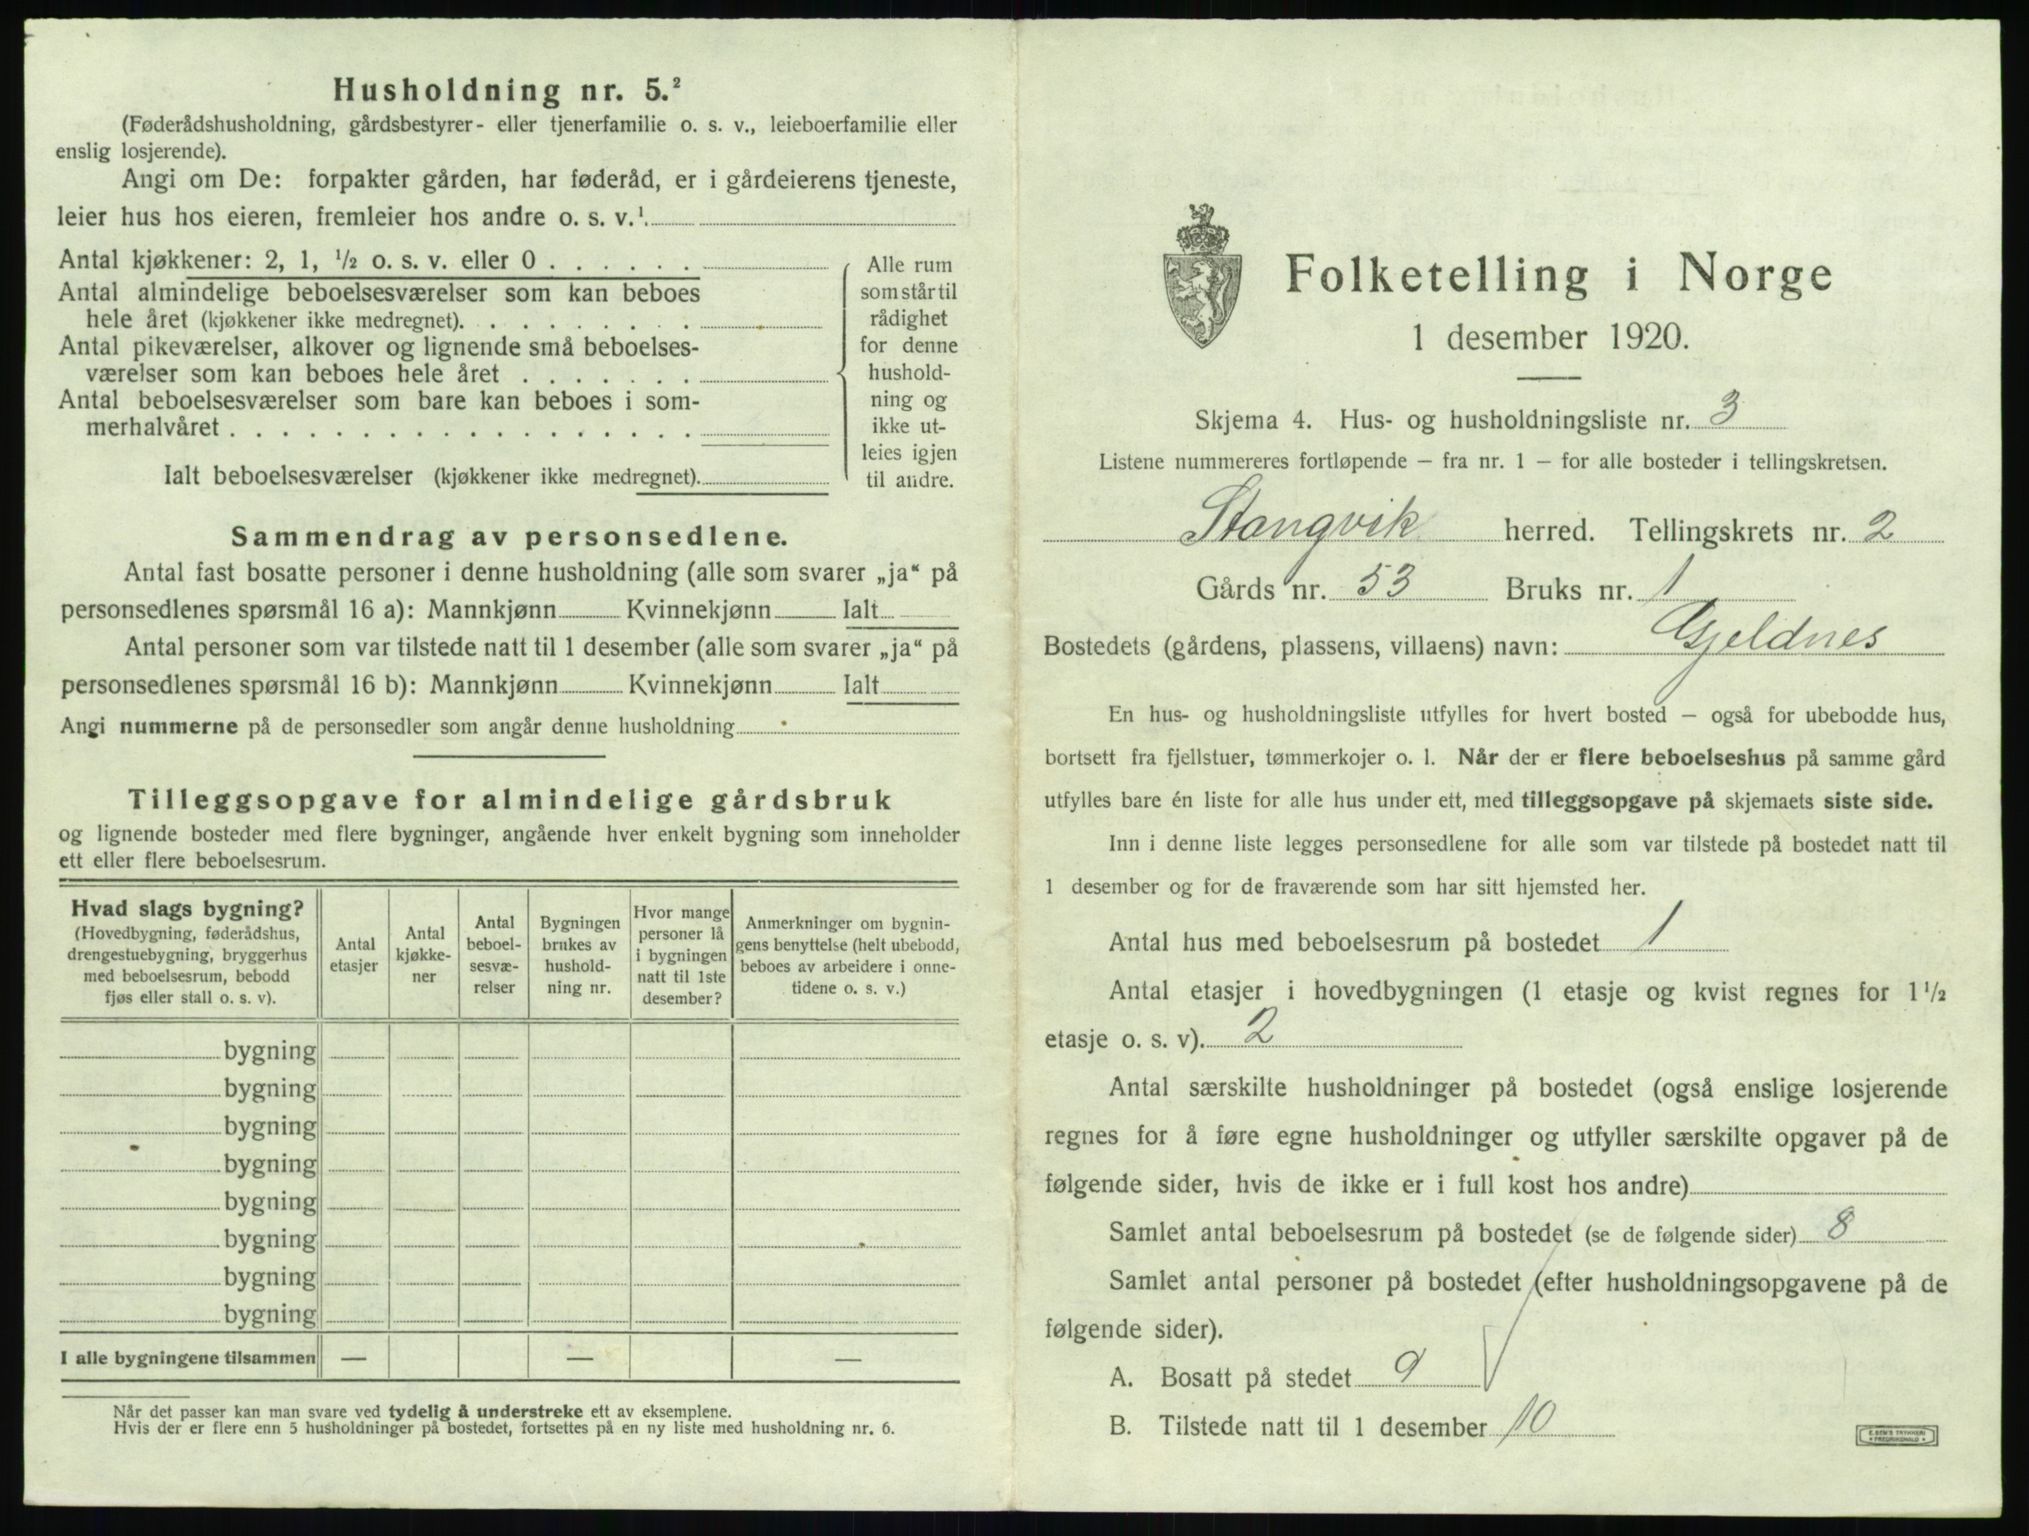 Husholdning nr. 5.²
(Føderådshusholdning, gårdsbestyrer- eller tjenerfamilie o. s. v., leieboerfamilie eller
enslig losjerende).
Angi om De: forpakter gården, har føderåd, er i gårdeierens tjeneste,
leier hus hos eieren, fremleier hos andre o. s. v.¹
Antal kjøkkener: 2, 1, ½ o. s. v. eller 0 . . . . . .
Antal almindelige beboelsesværelser som kan beboes
hele året (kjøkkener ikke medregnet). . . . . . . . .
Antal pikeværelser, alkover og lignende små beboelses-
værelser som kan beboes hele året . . . . . . .
Antal beboelsesværelser som bare kan beboes i som-
merhalvåret . . . . . . . . . . . . . . . . . .
Ialt beboelsesværelser (kjøkkener ikke medregnet).
Alle rum
som står til
rådighet
for denne
hushold-
ning og
ikke ut-
leies igjen
til andre.
Sammendrag av personsedlene.
Antal fast bosatte personer i denne husholdning (alle som svarer „ja“ på
personsedlenes spørsmål 16 a): Mannkjønn Kvinnekjønn Ialt
Antal personer som var tilstede natt til 1 desember (alle som svarer „ja“ på
personsedlenes spørsmål 16 b): Mannkjønn Kvinnekjønn Ialt
Angi nummerne på de personsedler som angår denne husholdning
Tilleggsopgave for almindelige gårdsbruk
og lignende bosteder med flere bygninger, angående hver enkelt bygning som inneholder
ett eller flere beboelsesrum.
Hvad slags bygning?
(Hovedbygning, føderådshus,
drengestuebygning, bryggerhus
med beboelsesrum, bebodd
fjøs eller stall o. s. v).
Antal
etasjer
Antal
kjøkke-
ner
Antal
beboel-
sesvæ-
relser
Bygningen
brukes av
hushold-
ning nr.
Hvor mange
personer lå
i bygningen
natt til 1ste
desember?
Anmerkninger om bygnin-
gens benyttelse (helt ubebodd,
beboes av arbeidere i onne-
tidene o. s. v.)
bygning
bygning
bygning
bygning
bygning
bygning
bygning
bygning
I alle bygningene tilsammen — — —
Når det passer kan man svare ved tydelig å understreke ett av eksemplene.
Hvis der er flere enn 5 husholdninger på bostedet, fortsettes på en ny liste med husholdning nr. 6.
Folketelling i Norge
1 desember 1920.
Skjema 4. Hus- og husholdningsliste nr. 3
Listene nummereres fortløpende – fra nr. 1 – for alle bosteder i tellingskretsen.
Stangvik herred. Tellingskrets nr. 2
Gårds nr. 53 Bruks nr. 1
Bostedets (gårdens, plassens, villaens) navn: Gjeldnes
En hus- og husholdningsliste utfylles for hvert bosted – også for ubebodde hus,
bortsett fra fjellstuer, tømmerkojer o. l. Når der er flere beboelseshus på samme gård
utfylles bare én liste for alle hus under ett, med tilleggsopgave på skjemaets siste side.
Inn i denne liste legges personsedlene for alle som var tilstede på bostedet natt til
1 desember og for de fraværende som har sitt hjemsted her.
Antal hus med beboelsesrum på bostedet 1
Antal etasjer i hovedbygningen (1 etasje og kvist regnes for 1½
etasje o. s. v). 2
Antal særskilte husholdninger på bostedet (også enslige losjerende
regnes for å føre egne husholdninger og utfyller særskilte opgaver på de
følgende sider, hvis de ikke er i full kost hos andre)
Samlet antal beboelsesrum på bostedet (se de følgende sider) 8
Samlet antal personer på bostedet (efter husholdningsopgavene på de
følgende sider).
A. Bosatt på stedet 9
B. Tilstede natt til 1 desember 10
E. SEM'S TRYKKERI
FREDRIKSHALD